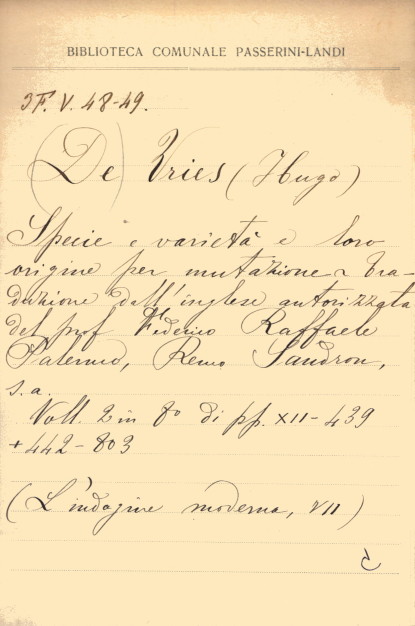 BIBLIOTECA COMUNALE PASSERINI-LANDI
3F. V. 48-49.
(De) Vries (Hugo)
Specie e varietà e loro
origine per mutazione ~ tra-
duzione dall'inglese autorizzata
del prof Federico Raffaele
Palermo, Remo Sandron,
s.a.
Voll. 2 in 8º di pp. XII-439
+442-803
(L'indagine moderna, VII)